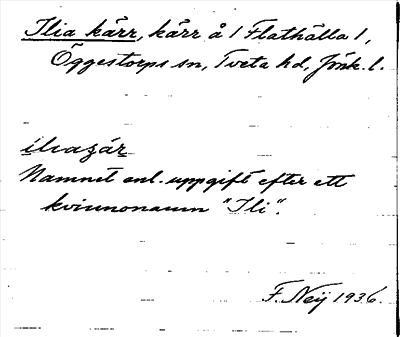 Ilia kärr, kärr å 1 Flathälla 1,
Öggestorps sn, Tveta hd, Jönk. l.
Namnet enl. uppgift efter ett
kvinnonamn "Ili".
F. Neij 1936.